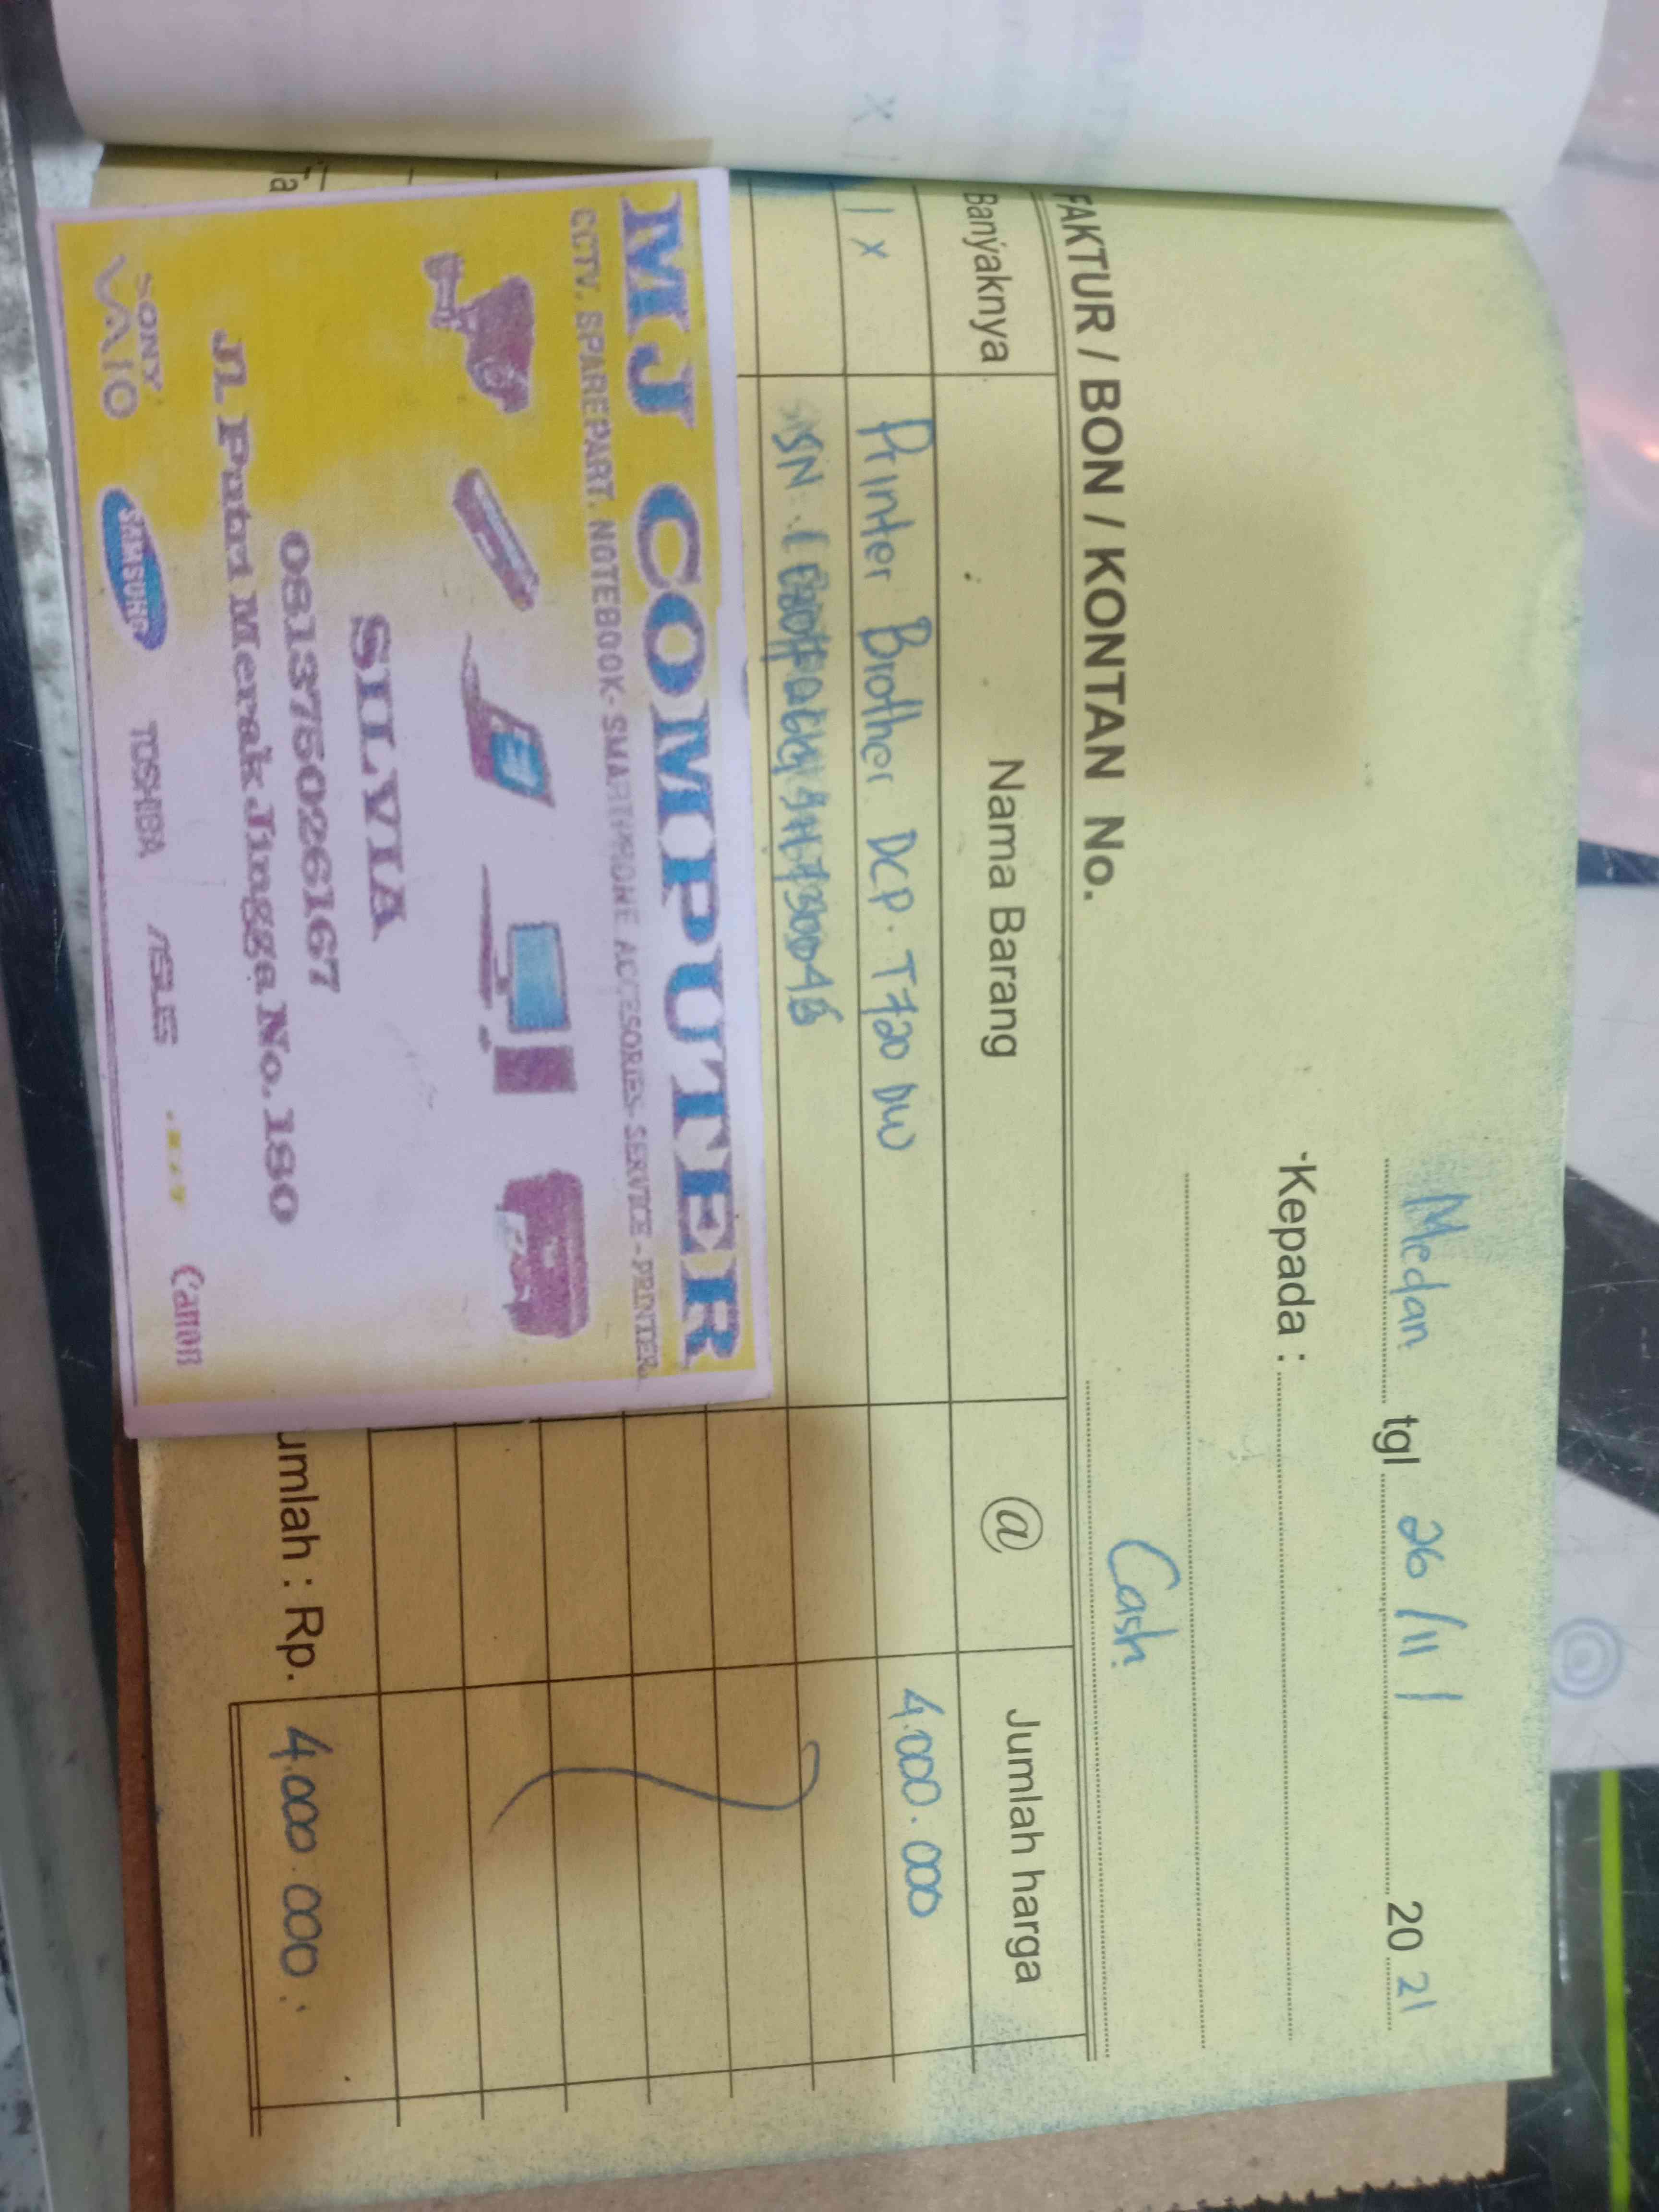 Medan tgl 26/11/ 20 21
Kepada :
Cash
FAKTUR / BON / KONTAN No.
Banyaknya Nama Barang @ Jumlah harga
1 x Printer Brother DCP. T720 DW 4.000.000
SN :
umlah : Rp. 4.000.000
MJ COMPUTER
CCTV. SPAREPART. NOTEBOOK-SMARTPHONE ACCESORIES-SERVICE-PRINTER.
SILVIA
081375026167
JL Putri Merak Jingga No. 180
SONY VAIO SAMSUNG TOSHIBA ASUS Canon